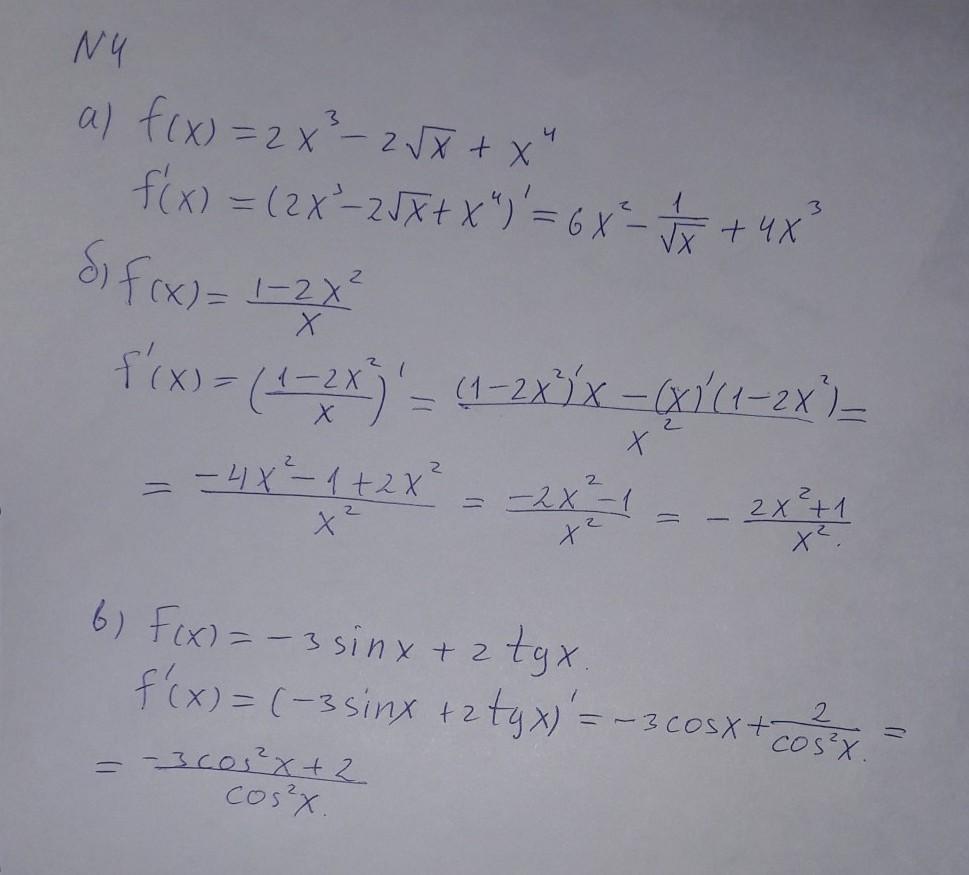 N4
а) f(x) = 2x³ - 2√x + x⁴
f'(x) = (2x³ - 2√x + x⁴)' = 6x² - 1/√x + 4x³
б) f(x) = (1-2x²)/x
f'(x) = ((1-2x²)/x)' = ((1-2x²)'x - (x)'(1-2x²))/x² =
= (-4x² - 1 + 2x²)/x² = (-2x² - 1)/x² = - (2x²+1)/x².
в) F(x) = -3 sin x + 2 tg x.
f'(x) = (-3 sin x + 2 tg x)' = -3 cos x + 2/cos²x. =
= (-3 cos²x + 2)/cos²x.